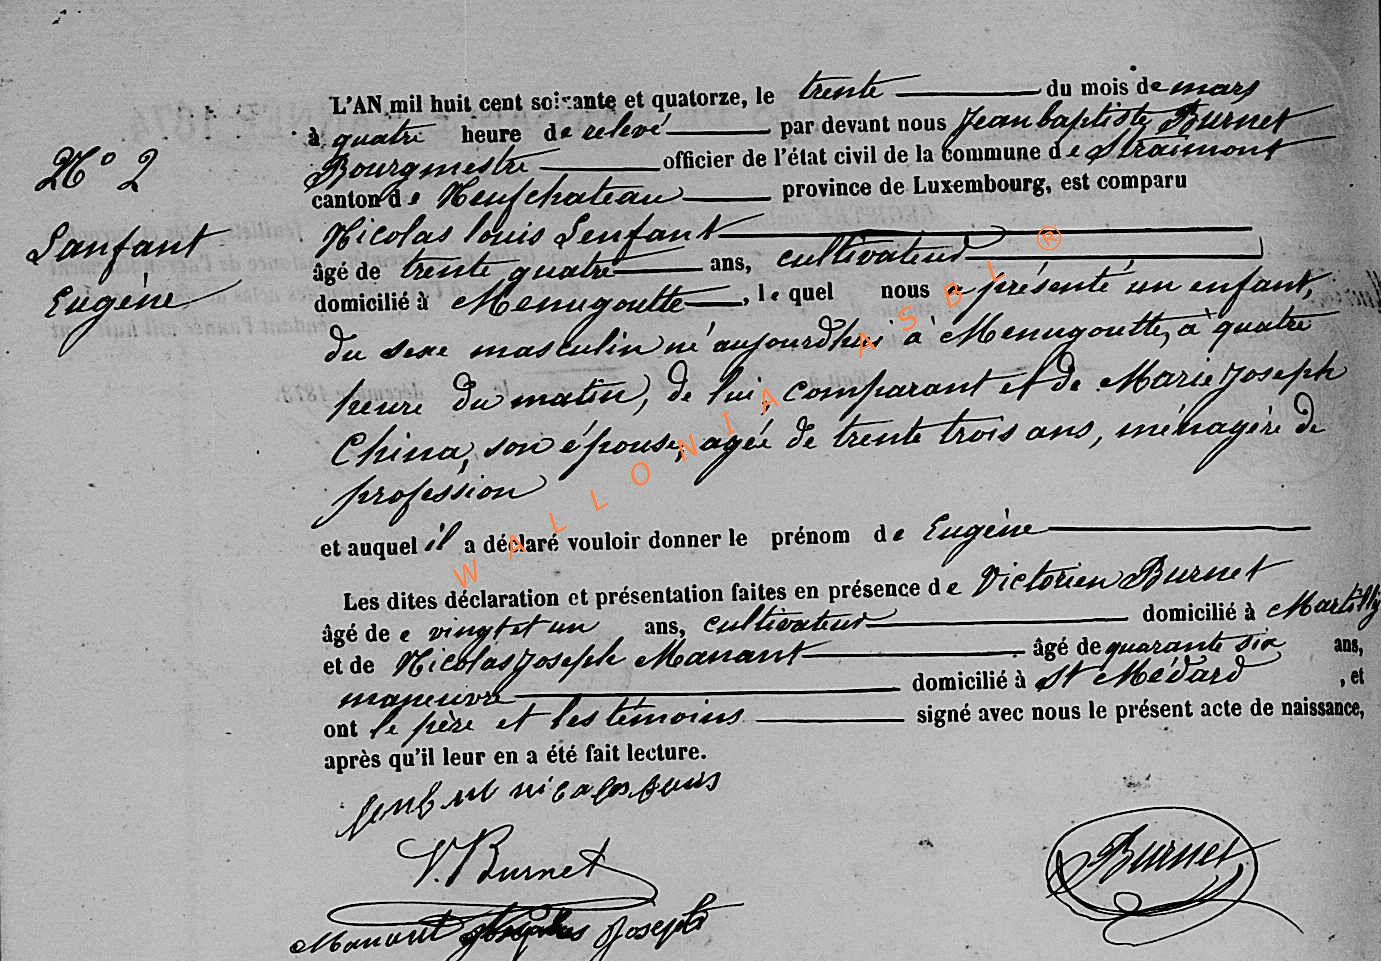 N° 2
Lanfant
Eugène
L'AN mil huit cent soixante et quatorze, le trente du mois de mars
à quatre heure de relevé par devant nous Jean baptiste Burnet
Bourgmestre officier de l'état civil de la commune de Straimont
canton de Neufchateau province de Luxembourg, est comparu
Nicolas Louis Lenfant
âgé de trente quatre ans, cultivateur
domicilié à Menugoutte, le quel nous a présenté un enfant,
du sexe masculin né aujourdhui à Menugoutte, à quatre
heure du matin, de lui, comparant et de Marie Joseph
China, son épouse, agée de trente trois ans, ménagère de
profession
et auquel il a déclaré vouloir donner le prénom de Eugène
Les dites déclaration et présentation faites en présence de Victorien Burnet
âgé de e vingt et un ans, cultivateur domicilié à Martilly
et de Nicolas Joseph Manant âgé de quarante six ans,
maneuvre domicilié à St Médard , et
ont le père et les témoins signé avec nous le présent acte de naissance,
après qu'il leur en a été fait lecture.
nicolas Louis
V. Burnet
Burnet
Manant Nicolas Joseph
WALLONIA ASBL ®